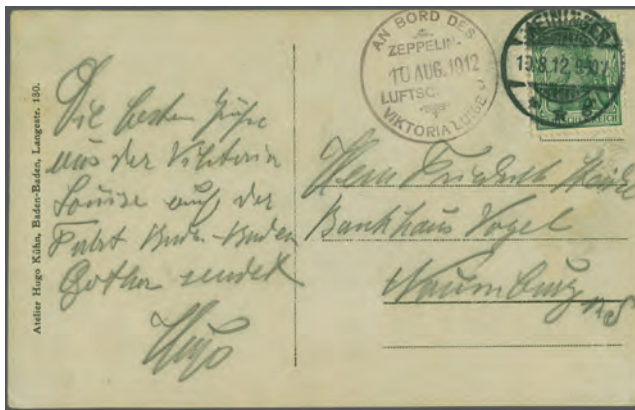 Atelier Hugo Kühn, Baden-Baden, Langestr. 130.
Die besten Grüße
aus der Viktoria
Louise auf der
Fahrt Baden-Baden
Gotha sendet
Hugo
AN BORD DES
ZEPPELIN-
10 AUG. 1912
LUFTSC
VIKTORIA LUISE
MEININGEN
8.12
Herrn Friedrich
Bankhaus Vogel
Naumburg a/S